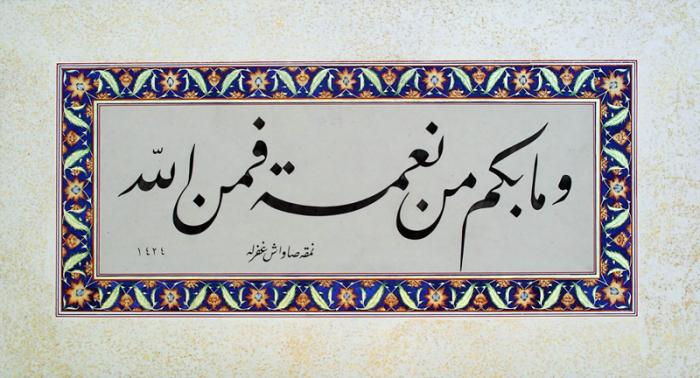 وما بكم من نعمة فمن الله
نمقه صاواش غفرله
١٤٢٤